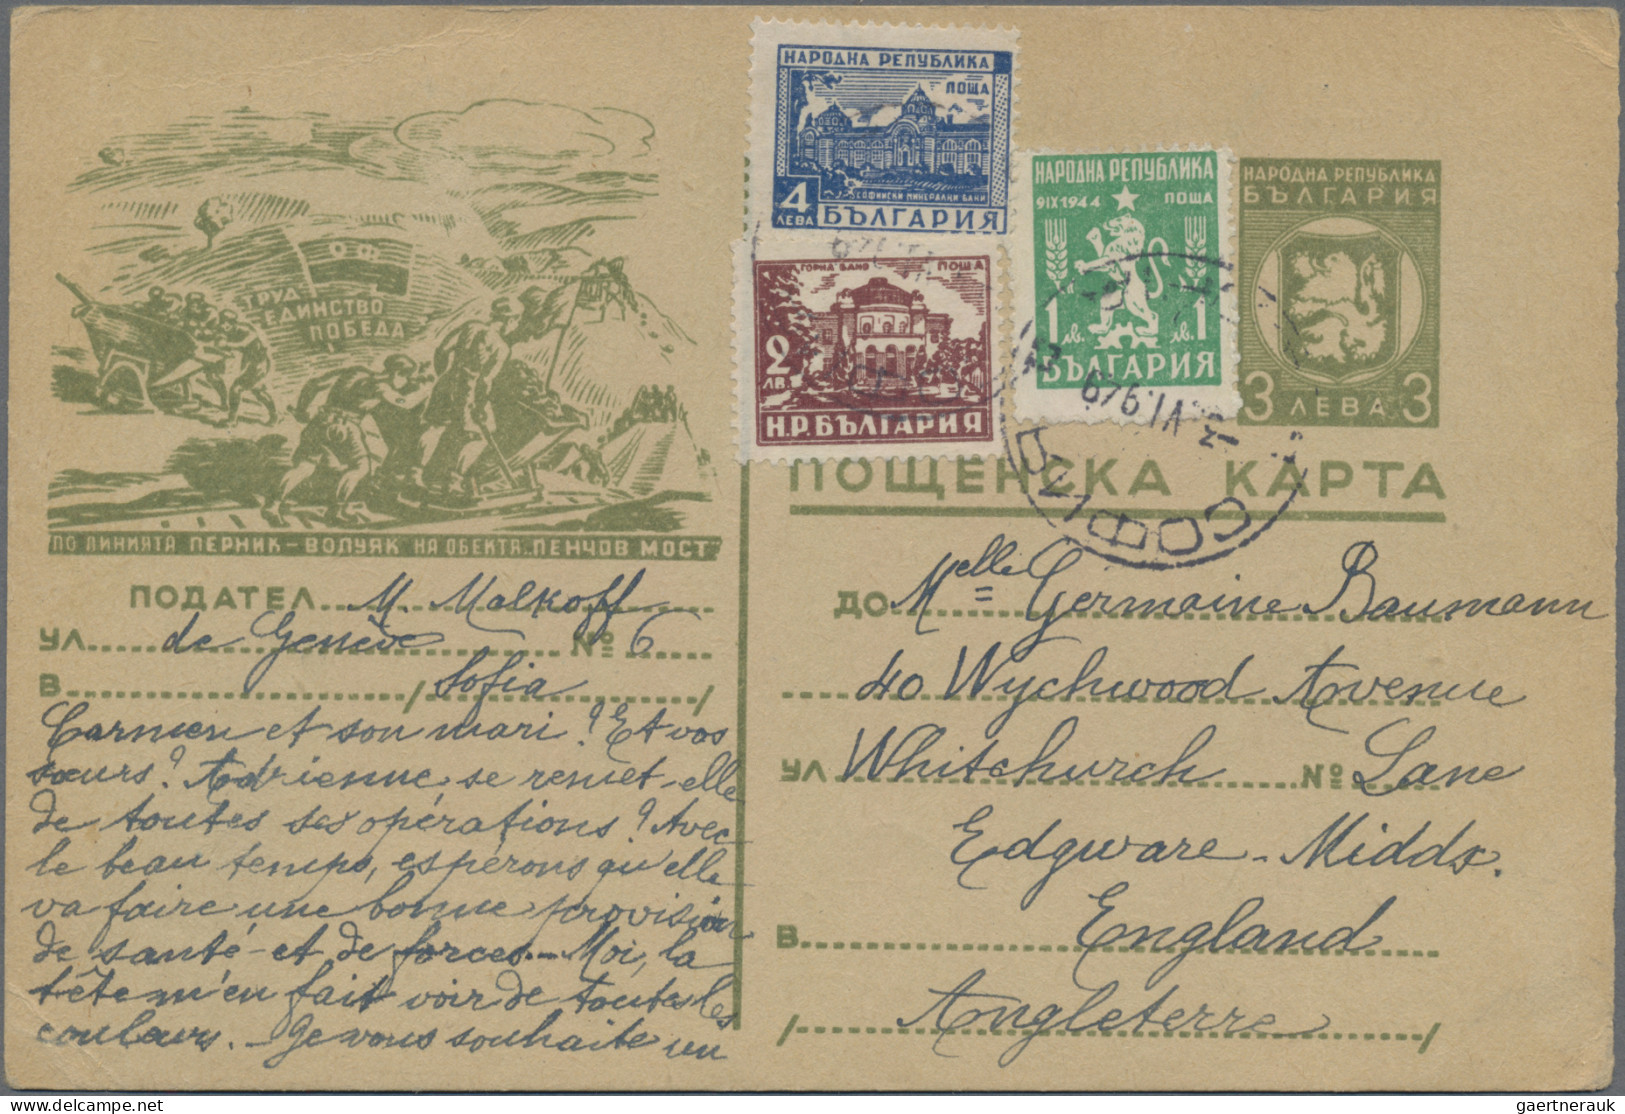 НАРОДНА РЕПУБЛИКА
ПОЩА
СОФИЙСКИ МИНЕРАЛНИ БАНИ
4 ЛЕВА
БЪЛГАРИЯ
ГОРНА БАНЯ ПОЩА
2 ЛВ.
Н.Р.БЪЛГАРИЯ
НАРОДНА РЕПУБЛИКА
9IX1944 ПОЩА
1 ЛВ. ЛВ. 1
БЪЛГАРИЯ
НАРОДНА РЕПУБЛИКА
БЪЛГАРИЯ
3 ЛЕВА 3
СОФИЯ
ПОЩЕНСКА КАРТА
О.Ф.
ТРУД
ЕДИНСТВО
ПОБЕДА
ПО ЛИНИЯТА ПЕРНИК-ВОЛУЯК НА ОБЕКТА „ПЕНЧОВ МОСТ"
ПОДАТЕЛ M. Malkoff
УЛ. de Genève № 6
В / Sofia /
Carmen et son mari? Et vos
sœurs? Adrienne, se remet-elle
de toutes ses opérations? Avec
le beau temps, espérons qu'elle
va faire une bonne provision
de santé et de forces.— Moi, la
tête m'en fait voir de toutes les
couleurs. — Je vous souhaite un
ДО Melle Germaine Baumann
40 Wychwood Avenue
УЛ Whitchurch № Lane
Edgware - Middx.
В England
/ Angleterre /
gaertnerauk